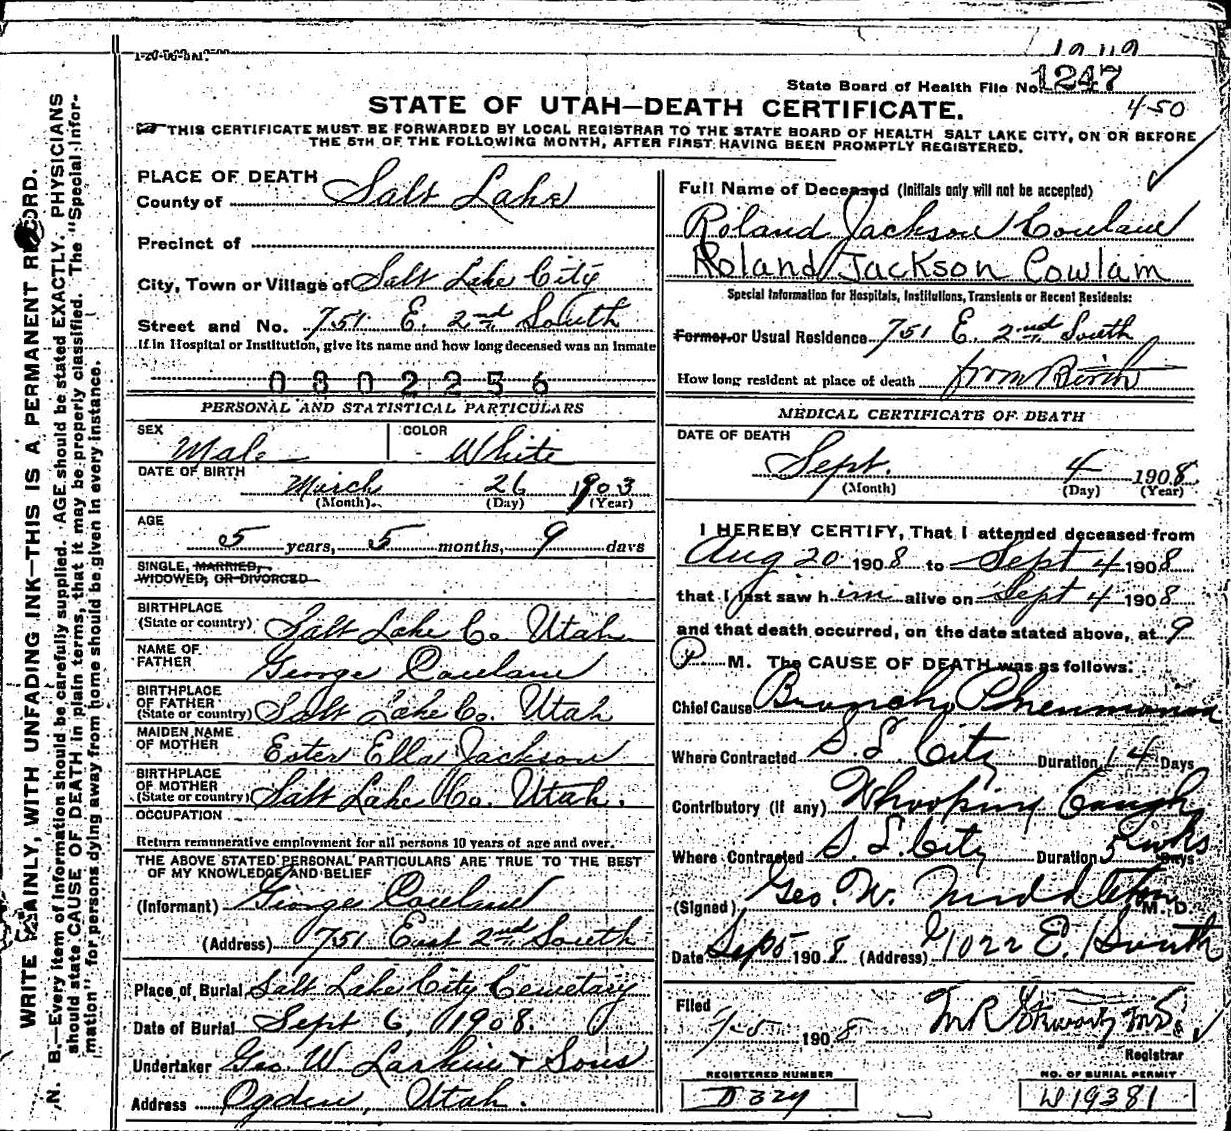 State Board of Health File No. 1247
450
STATE OF UTAH—DEATH CERTIFICATE.
THIS CERTIFICATE MUST BE FORWARDED BY LOCAL REGISTRAR TO THE STATE BOARD OF HEALTH SALT LAKE CITY, ON OR BEFORE
THE 5TH OF THE FOLLOWING MONTH, AFTER FIRST HAVING BEEN PROMPTLY REGISTERED.
WRITE PLAINLY, WITH UNFADING INK—THIS IS A PERMANENT RECORD.
N. B.—Every item of information should be carefully supplied. AGE should be stated EXACTLY. PHYSICIANS
should state CAUSE OF DEATH in plain terms, that it may be properly classified. The "Special Infor-
mation" for persons dying away from home should be given in every instance.
PLACE OF DEATH
County of Salt Lake
Precinct of
City, Town or Village of Salt Lake City
Street and No. 751 E. 2nd South
If in Hospital or Institution, give its name and how long deceased was an Inmate
0302256
PERSONAL AND STATISTICAL PARTICULARS
SEX Male COLOR White
DATE OF BIRTH March 26 1903
(Month) (Day) (Year)
AGE
5 years, 5 months, 9 days
SINGLE, MARRIED,
WIDOWED, OR DIVORCED
BIRTHPLACE
(State or country) Salt Lake Co. Utah
NAME OF
FATHER George Cowlam
BIRTHPLACE
OF FATHER
(State or country) Salt Lake Co. Utah
MAIDEN NAME
OF MOTHER Ester Ella Jackson
BIRTHPLACE
OF MOTHER
(State or country) Salt Lake Co. Utah.
OCCUPATION
Return remunerative employment for all persons 10 years of age and over.
THE ABOVE STATED PERSONAL PARTICULARS ARE TRUE TO THE BEST
OF MY KNOWLEDGE AND BELIEF
(Informant) George Cowlam
(Address) 751 East 2nd South
Place of Burial Salt Lake City Cemetary
Date of Burial Sept 6, 1908.
Undertaker Geo. W. Larkin & Sons
Address Ogden, Utah.
Full Name of Deceased (Initials only will not be accepted)
Roland Jackson Cowlam
Roland Jackson Cowlam
Special Information for Hospitals, Institutions, Transients or Recent Residents:
Former or Usual Residence 751 E. 2nd South
How long resident at place of death from Birth
MEDICAL CERTIFICATE OF DEATH
DATE OF DEATH
Sept. 4 1908
(Month) (Day) (Year)
I HEREBY CERTIFY, That I attended deceased from
Aug 20 1908 to Sept 4 1908
that I last saw him alive on Sept 4 1908
and that death occurred, on the date stated above, at 9
P M. The CAUSE OF DEATH was as follows:
Chief Cause Broncho Pheumonia
Where Contracted S L City Duration 14 Days
Contributory (if any) Whooping Cough
Where Contracted S. L. City Duration 5 wks Days
(Signed) Geo. W. Middleton M. D.
Date Sep 5 1908 (Address) 1022 E. 1 South
Filed 9-5 1908
Registrar
REGISTERED NUMBER NO. OF BURIAL PERMIT
D 324 W 19381